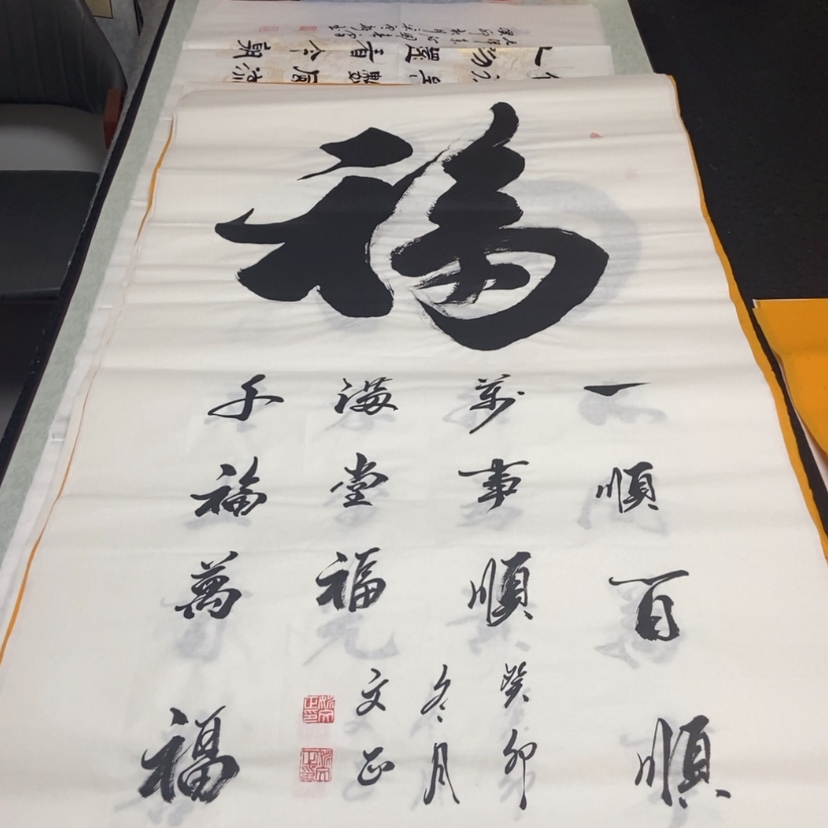 福
一順百順
萬事順
滿堂福
千福萬福
癸卯
冬月
文正